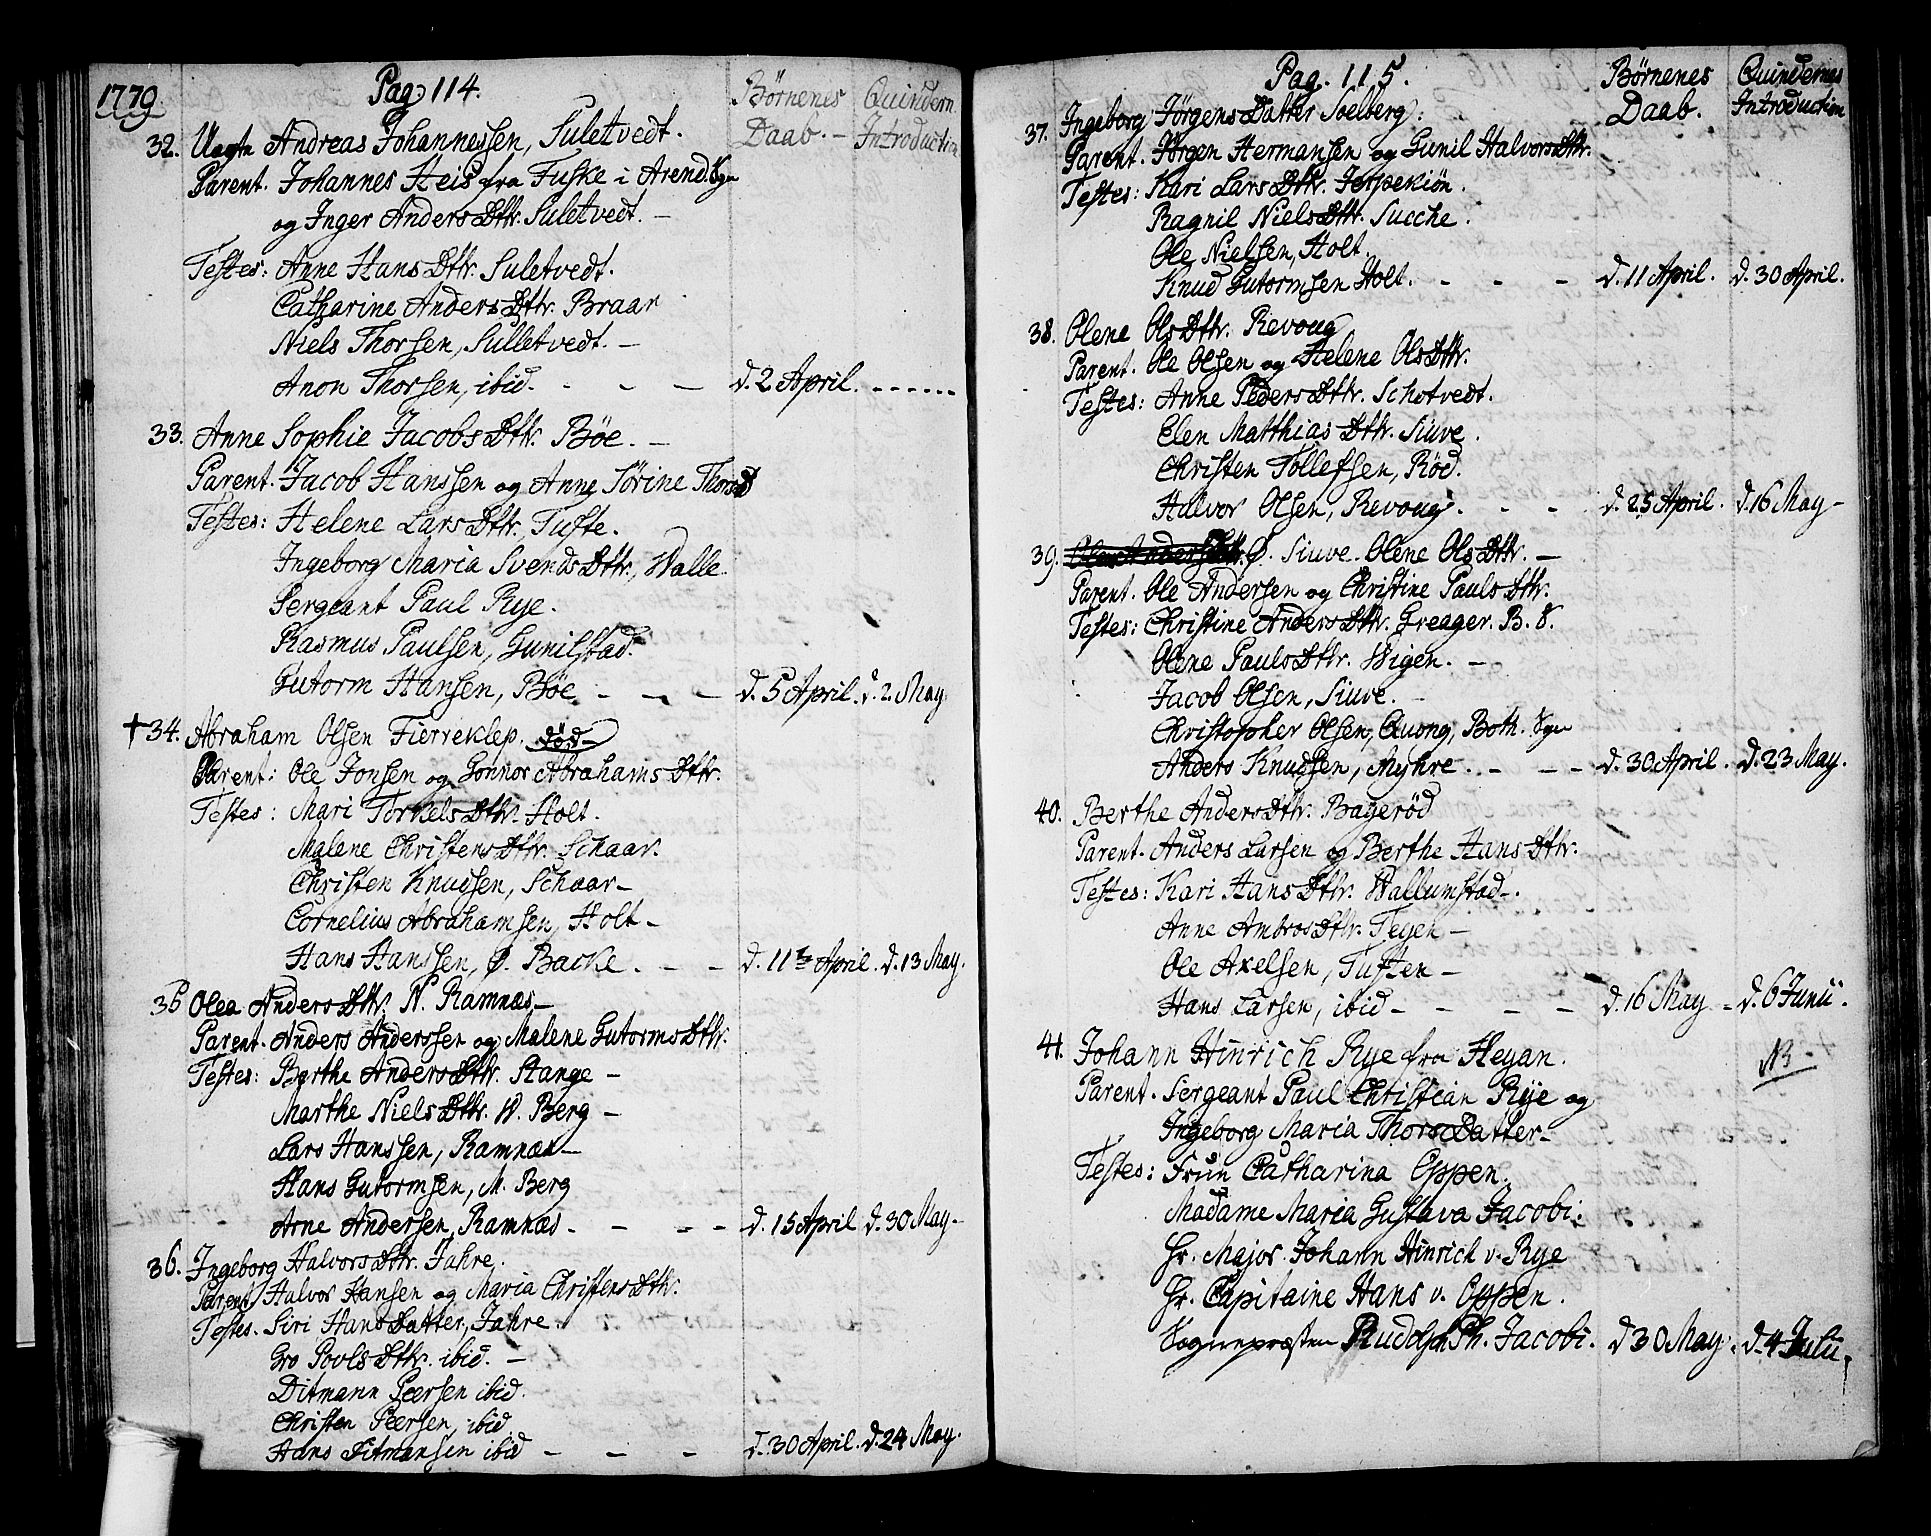 1779.
Pag. 114.
Börnenes Daab. –
Quindern Introduction
32. Uægte Andreas Johannessen, Suletvedt.
Parent. Johannes Heis fra Fuske i Arend. Sgn
og Inger Anders Dttr. Suletvedt. –
Testes: Anne Hans Dttr. Suletvedt.
Catharine Anders Dttr. Braar
Niels Thorsen, Sulletvedt. –
Anon Thorsen, ibid. - - - d. 2 April. ------
33. Anne Sophie Jacobs Dttr. Böe. –
Parent. Jacob Hanssen og Anne Sörine Thors D
Testes: Helene Lars Dttr. Tufte.
Ingeborg Maria Svends Dttr., Walle.
Sergeant Paul Rye.
Rasmus Paulsen, Gunilstad.
Gutorm Hansen, Böe - - - d. 5 April. d. 2. May.
† 34. Abraham Olsen Fierreklep. död –
Parent: Ole Jonsen og Gonnor Abrahams Dttr.
Testes: Mari Torkels Dttr. Holt.
Malene Christens Dttr. Schaar.
Christen Knudsen, Schaar –
Cornelius Abrahamsen, Holt –
Hans Hanssen, Ø. Backe. - - d. 11te April. d. 13 May.
35 Olea Anders Dttr. N. Ramnæs –
Parent. Anders Anderssen og Malene Gutorms Dttr.
Testes: Berthe Anders Dttr. Stange –
Marthe Niels Dttr. W. Berg –
Lars Hanssen, Ramnæs –
Hans Gutormsen, M. Berg
Arne Andersen, Ramnæs - - - - d. 15 April d. 30 May –
36. Ingeborg Halvors Dttr. Jahre.
Parent. Halvor Hansen og Maria Christens Dttr.
Testes. Siri Hans Datter, Jahre.
Gro Povls Dttr. ibid. –
Ditmann Peersen ibid.
Christen Peersen, ibid
Hans Ditmansen ibid - - - d. 30 April. d. 24 May.
Pag. 115.
Börnenes Daab.
Quindernes Introduction
37. Ingeborg Jörgens Datter Soelberg.
Parent. Jörgen Hermansen og Gunil Halvors Dttr.
Testes: Kari Lars Dttr. Jerpekiön.
Ragnil Niels Dttr. Sucche.
Ole Nielsen, Holt.
Knud Gutormsen Holt. - - - d. 11 April. d. 30 April.
38. Olene Ols Dttr. Revoug
Parent. Ole Olsen og Helene Ols Dttr.
Testes: Anne Peders Dttr. Schotvedt.
Elen Matthias Dttr. Siuve.
Christen Tollefsen, Röd.
Halvor Olsen, Revoug. - - d. 25 April. d. 16 May –
39. Ø. Siuve. Olene Ols Dttr. –
Parent. Ole Andersen og Christine Pauls Dttr.
Testes: Christine Anders Dttr. Greager. B. S.
Olene Pauls Dttr. Wigen. –
Jacob Olsen, Siuve. –
Christopher Olsen, Quong, Both. Sgn
Anders Knudsen, Myhre. - - - d. 30 April. d. 23 May.
40. Berthe Anders Dttr. Bageröd
Parent. Anders Larsen og Berthe Hans Dttr.
Testes: Kari Hans Dttr. Wallumstad –.
Anne Ambros Dttr. Tegen –
Ole Axelsen, Tuften –
Hans Larsen, ibid - - - - d. 16 May - d. 6 Junii.
41. Johann Hinrich Rye fra Heyan. NB –
Parent. Sergeant Paul Christian Rye og
Ingeborg Maria Thors Datter –
Testes: Frün Catharina Oppen.
Madame Maria Gustava Jacobi.
Hr. Major Johann Hinrich v. Rye
Hr. Capitaine Hans v. Oppen.
Sognepræsten Rudolph Ph. Jacobi. d 30 May. d. 4 Julii.